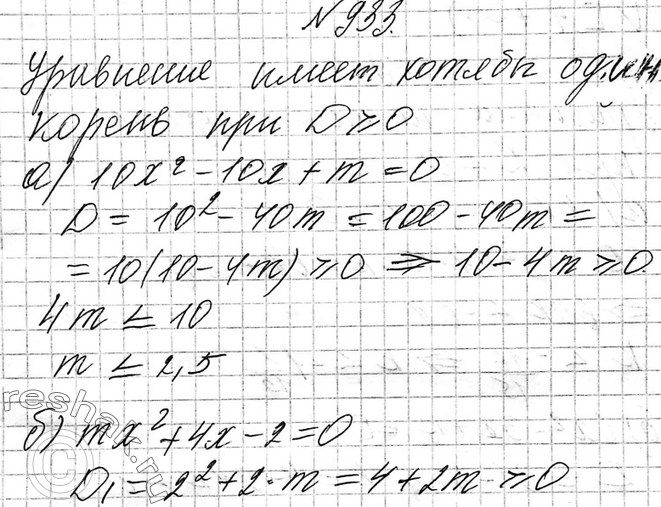 №933.
Уравнение имеет хотябы один
корень при D ≥ 0
а) 10x² - 10x + m = 0
D = 10² - 40m = 100 - 40m =
= 10(10 - 4m) ≥ 0 ⇒ 10 - 4m ≥ 0
4m ≤ 10
m ≤ 2,5
б) mx² + 4x - 2 = 0
D₁ = 2² + 2·m = 4 + 2m ≥ 0
reshak.ru